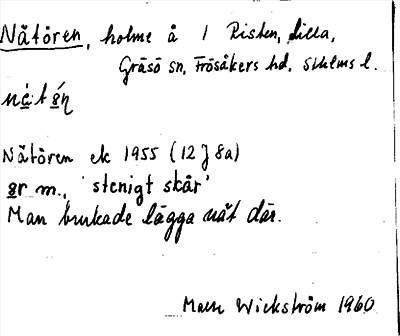 Nätören, holme å / Risten, Lilla,
Gräsö sn, Frösåkers hd, Sthlms l.
nǽtǿn
Nätören ek 1955 (12 J 8a)
ör m., 'stenigt skär'
Man brukade lägga nät där.
Wickström 1960